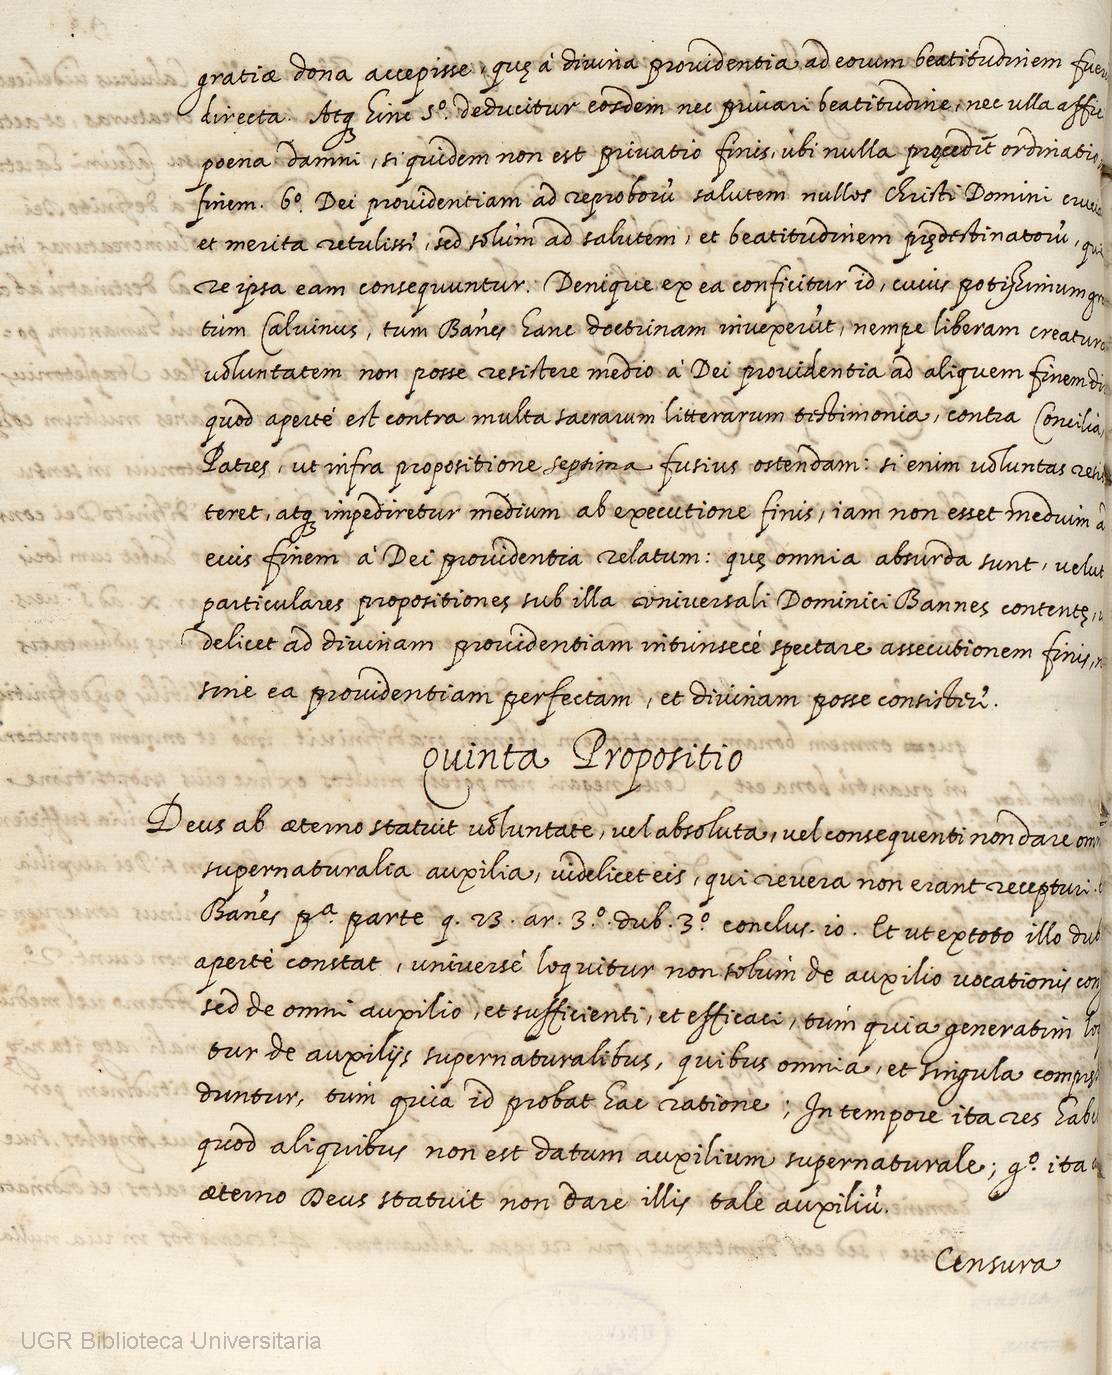 gratiæ dona accepisse, quę á divina providentia ad eorum beatitudinem fuer
directa. Atq hinc 5º. deducitur eosdem nec privari beatitudine, nec ulla affic
poena damni, si quidem non est privatio finis, ubi nulla pręcedit ordinatio
finem. 6º. Dei providentiam ad reproborū salutem nullos Christi Domini cruci
et merita retulisse, sed solùm ad salutem, et beatitudinem prędestinatorū, qui
re ipsa eam consequuntur. Denique ex ea conficitur id, cuius potissimum gr
tùm Calvinus, tum Banes hanc doctrinam invexerūt, nempe liberam creatura
voluntatem non posse resistere medio à Dei providentia ad aliquem finem di
quod aperté est contra multa sacrarum litterarum testimonia, contra Concilia,
Patres, ut infra propositione septima fusius ostendam: si enim voluntas resis
teret, atq impediretur medium ab executione finis, iam non esset medium a
eius finem à Dei providentia relatum: quę omnia absurda sunt, velut
particulares propositiones sub illa universali Dominici Bannes contentę,
delicet ad divinam providentiam intrinsecé spectare assecutionem finis,
sine ea providentiam perfectam, et divinam posse consistere.
Quinta Propositio
Deus ab æterno statuit voluntate, vel absoluta, vel consequenti non dare om
supernaturalia auxilia, videlicet eis, qui revera non erant recepturi.
Banes pª. parte q. 23. ar. 3º. dub. 3º conclus. io. Et ut ex toto illo dub
aperté constat, universé loquitur non solùm de auxilio vocationis con
sed de omni auxilio, et sufficienti, et efficaci, tùm quia generatim lo
tur de auxilijs supernaturalibus, quibus omnia, et singula compre
duntur, tùm quia id probat hac ratione; In tempore ita res habu
quod aliquibus non est datum auxilium supernaturale; gº. ita
æterno Deus statuit non dare illis tale auxiliū.
Censura
UGR Biblioteca Universitaria